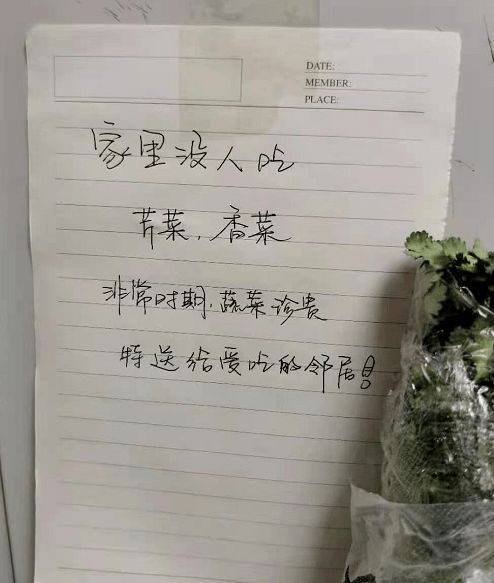 DATE:
MEMBER:
PLACE:
家里没人吃
芹菜，香菜
非常时期，蔬菜珍贵
特送给爱吃的邻居！